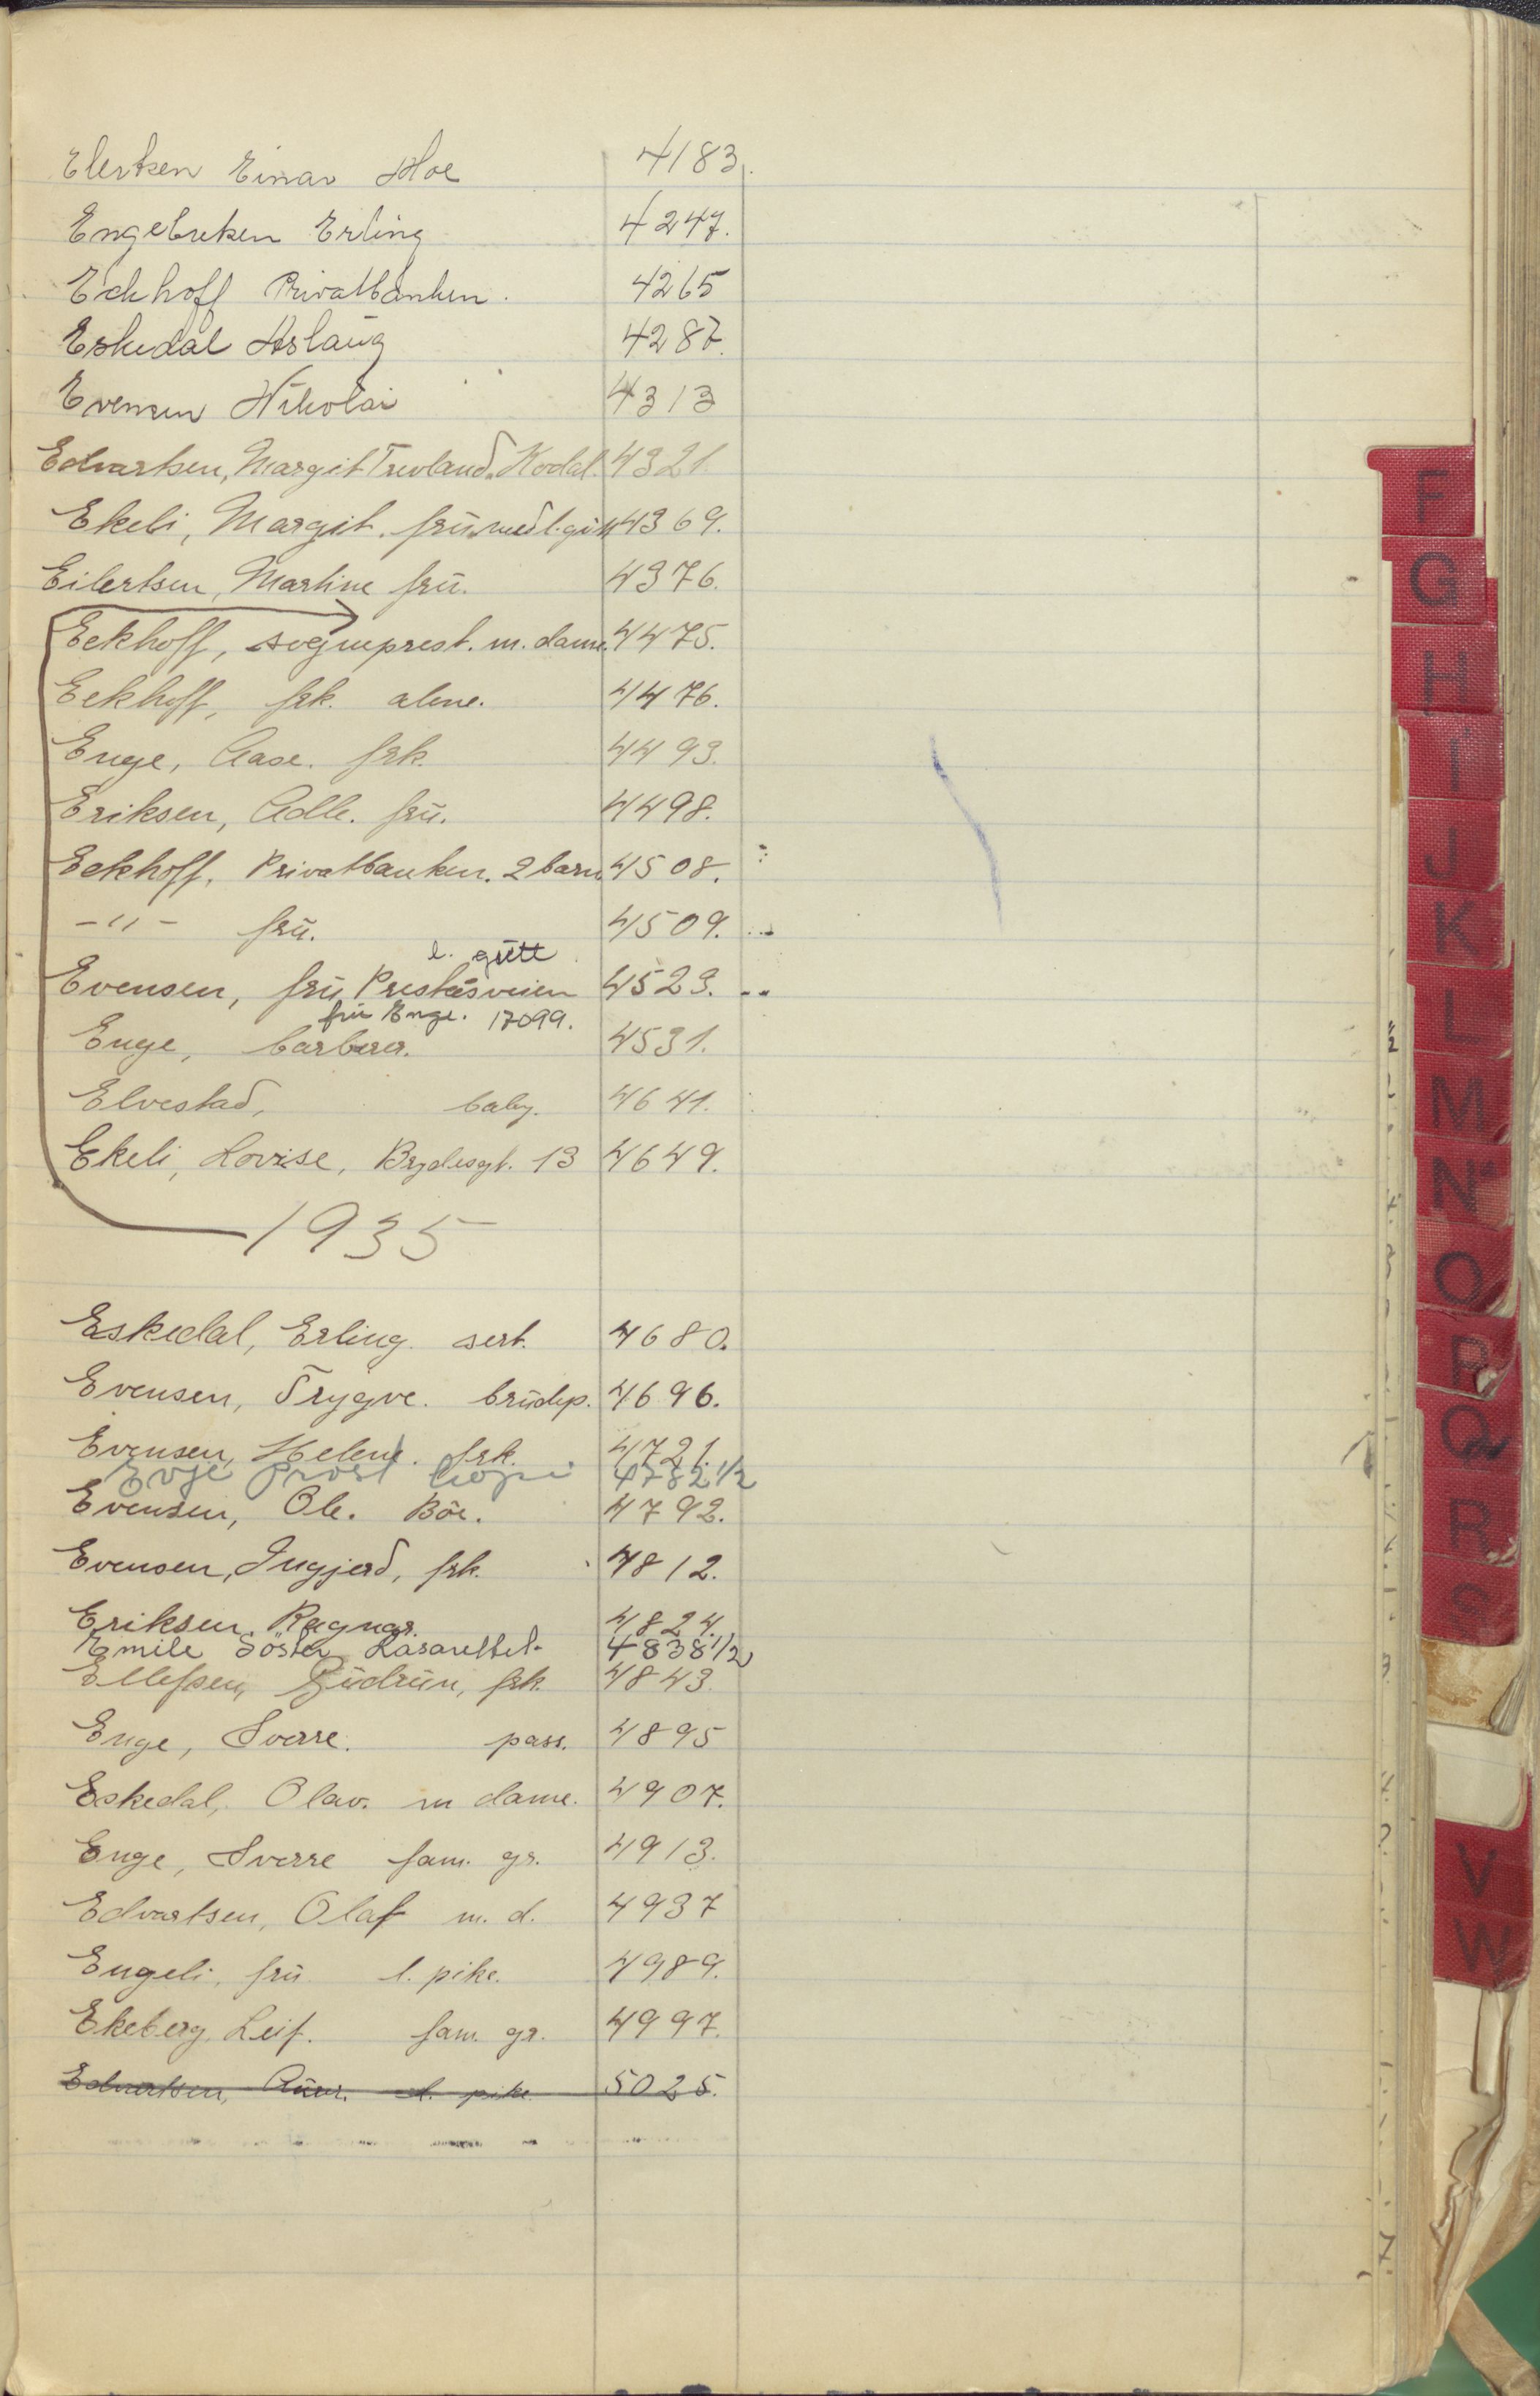 Elertsen Einar Moe 4183.
Engebretsen Erling 4247.
Eckhoff Privatbanken. 4265
Eskedal Aslaug 4287.
Evensen Nikolai 4313
Edvartsen, Margit Trevland. Kodal. 4321
Ekeli, Margit. frü. med l. gütt 4369.
Eilertsen, Martine frü. 4376.
Eckhoff, sogneprest. m. dame. 4475.
Eckhoff, frk. alene. 4476.
Enge, Aase. frk. 4493.
Eriksen, Adle. frü. 4498.
Eckhoff, Privatbanken. 2 barn 4508.
-"- frü. 4509.
l. gütt
Evensen, frü Preståsveien 4523.
frü Enge. 17099.
Enge, barberer. 4531.
Elvestad, baby. 4641.
Ekeli, Lovise, Brydesgt. 13 4649.
1935
Eskedal, Erling. sert. 4680.
Evensen, Trygve. brüdep. 4696.
Evensen, Helene. frk. 4721.
Evje Prost kopi 4782 1/2
Evensen, Ole. Bøe. 4792.
Evensen, Ingjerd, frk. 4812.
Eriksen, Ragnar. 4824.
Emile Söster Lasarettet. 4838 1/2
Ellefsen, Güdrün, frk. 4843.
Enge, Sverre. pass. 4895
Eskedal, Olav. m dame. 4907.
Enge, Sverre fam. gr. 4913.
Edvartsen, Olaf m. d. 4937
Engeli, frü l. pike. 4989.
Ekeberg, Leif. fam. gr. 4997.
Edvartsen, l. pike. 5025.
F
G
H
I
J
K
L
M
N
O
P
Q
R
S
V
W